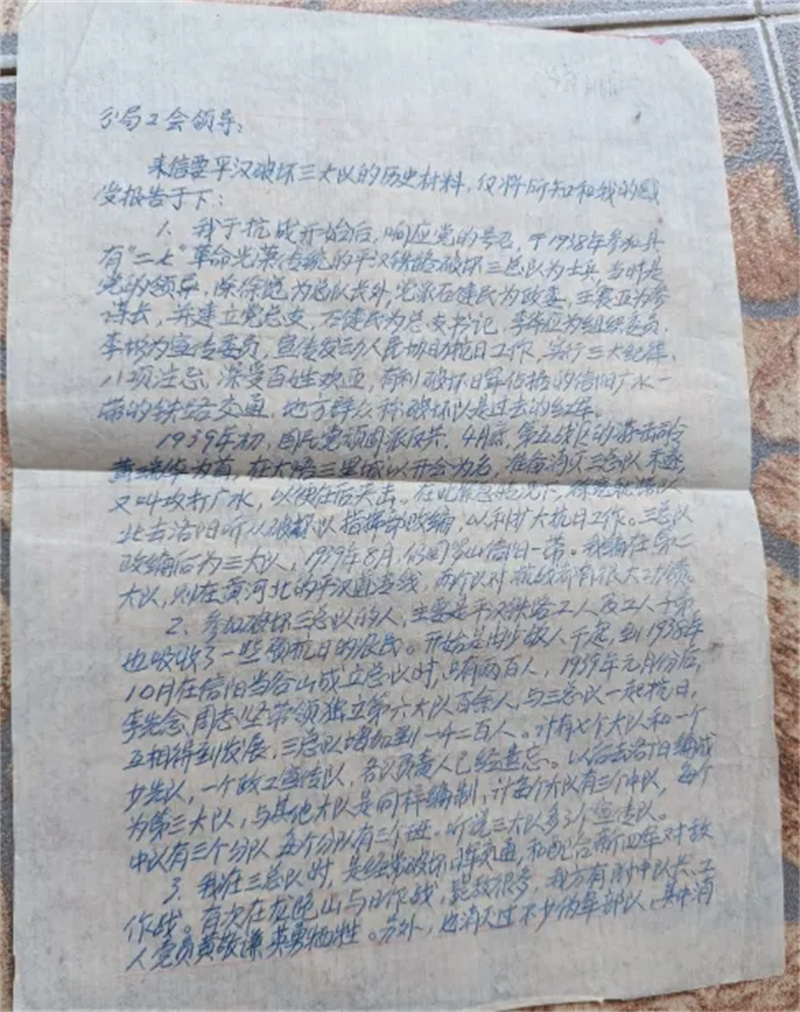 分局工会领导:
来信要平汉破坏三大队的历史材料,仅将所知和我的
发报告于下:
1、我于抗战开始后,响应党的号召,于1938年参加具
有"二七"革命光荣传统的平汉铁路破坏三总队为士兵,当时是
党的领导,除徐宽为总队长外,党派石健民为政委,王赛亚为参
谋长,并建立党总支,石健民为总支书记,李华应为组织委员,
李为宣传委员,宣传发动人民协助抗日工作,实行三大纪律,
八项注意,深受百姓欢迎,有利破坏日军占据的信阳广水一
带的铁路交通,地方群众称破坏队是过去的红军。
1939年初,国民党顽固派反共,4月,第五战区的游击司令
黄瑞华为首,在大悟三里城以开会为名,准备消灭三总队未遂,
又叫攻打广水,以便在后夹击。在此紧急情况下,徐宽就带队
北去洛阳听从破坏队指挥部改编,以利扩大抗日工作。三总队
改编后为三大队,1939年8月,仍回罗山信阳一带。我编在第二
大队,则在黄河北的平汉道支线,两个队对抗战都有很大功绩。
2、参加破坏三总队的人,主要是平汉铁路工人及工人子弟,
也吸收了一些抗日的农民。开始是由少数人干起,到1938年
10月在信阳当谷山成立总队时,只有两百人,1939年元月份后,
李先念、周志坚带领独立第六大队百余人,与三总队一起抗日,
互相得到发展,三总队增加到一千二百人。计有七个大队和一个
少先队,一个政工宣传队,各队负责人已经遗忘。以后去洛阳编成
为第三大队,与其他大队是同样编制,计每个大队有三个中队,每个
中队有三个分队,每个分队有三个班。听说三大队多了个宣传队。
3、我在三总队时,是经常破坏日军交通,和配合新四军对敌
作战。有次在龙山与日作战,毙敌很多,我方有附中队长、工
人党员黄敬谦英勇牺牲。另外,也消灭过不少伪军部队,其中消